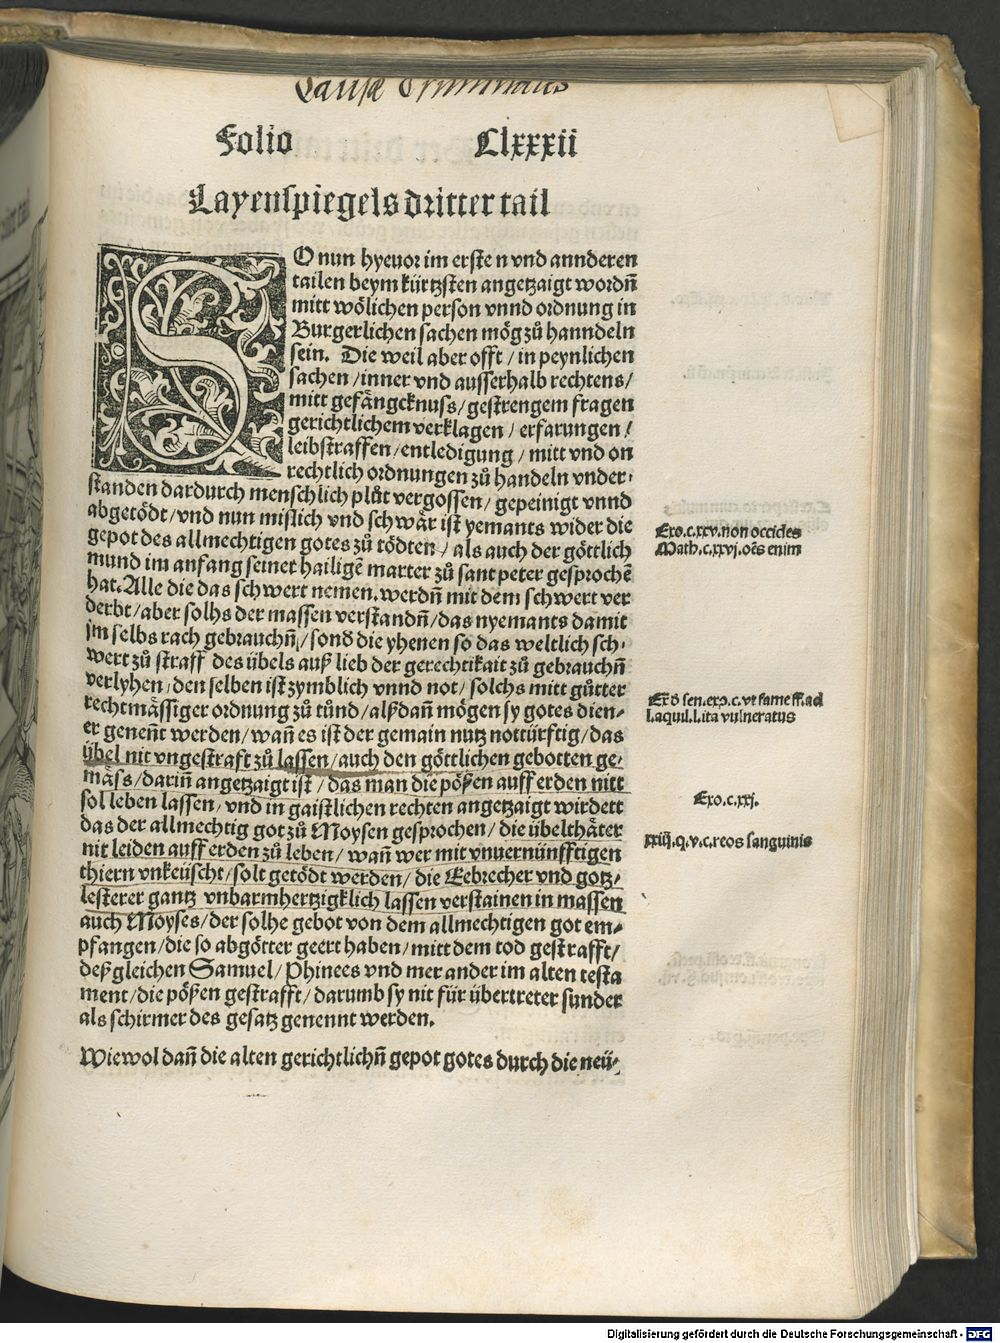 Causae Criminales
Folio Clxxxii
Layenspiegels dritter tail
SO nun hyeuor im ersten vnd annderen
tailen beym kürtzsten angetzaigt wordn̄
mitt wölichen person vnnd ordnung in
Burgerlichen sachen mög zů hanndeln
sein. Die weil aber offt / in peynlichen
sachen / inner vnd ausserhalb rechtens /
mitt gefängcknuss / gestrengem fragen
gerichtlichem verklagen / erfarungen /
leibstraffen / entledigung / mitt vnd on
rechtlich ordnungen zů handeln vnder-
standen dardurch menschlich plůt vergossen / gepeinigt vnnd
abgetödt / vnd nun mislich vnd schwär ist yemants wider die
gepot des allmechtigen gotes zů tödten / als auch der göttlich
mund im anfang seiner hailigē marter zů sant peter gesprochē
hat. Alle die das schwert nemen. werdn̄ mit dem schwert ver
derbt / aber solhs der massen verstandn̄ / das nyemants damit
jm selbs rach gebrauchn̄ / sond̄ die yhenen so das weltlich sch-
wert zů straff des übels auß lieb der gerechtikait zů gebrauchn̄
verlyhen / den selben ist zymblich vnnd not / solchs mitt gůtter
rechtmässiger ordnung zů tůnd / alßdann mögen sy gotes dien-
er genen̄t werden / wan̄ es ist der gemain nutz nottürftig / das
übel nit vngestraft zů lassen / auch den göttlichen gebotten ge-
mäss / darin̄ angetzaigt ist / das man die pößen auff erden nitt
sol leben lassen / vnd in gaistlichen rechten angetzaigt wirdett
das der allmechtig got zů Moysen gesprochen / die übelthäter
nit leiden auff erden zů leben / wan̄ wer mit vnuernünfftigen
thiern vnkeüscht / solt getödt werden / die Eebrecher vnd gotz-
lesterer gantz vnbarmhertzigklich lassen verstainen in massen
auch Moyses / der solhe gebot von dem allmechtigen got em-
pfangen / die so abgötter geert haben / mitt dem tod gestrafft /
deß gleichen Samuel / Phinees vnd mer ander im alten testa
ment / die pößen gestrafft / darumb sy nit für übertreter sunder
als schirmer des gesatz genennt werden.
Wiewol dan̄ die alten gerichtlichn̄ gepot gotes durch die neü-
Exo.c.xxv.non occides
Math.c.xxvj.oēs enim
Ex d̄ sen.exo.c.vt fame ff.ad
l.aquil.l.ita vulneratus
Exo.c.xxj.
xxiij.q.v.c.reos sanguinis
Digitalisierung gefördert durch die Deutsche Forschungsgemeinschaft - DFG